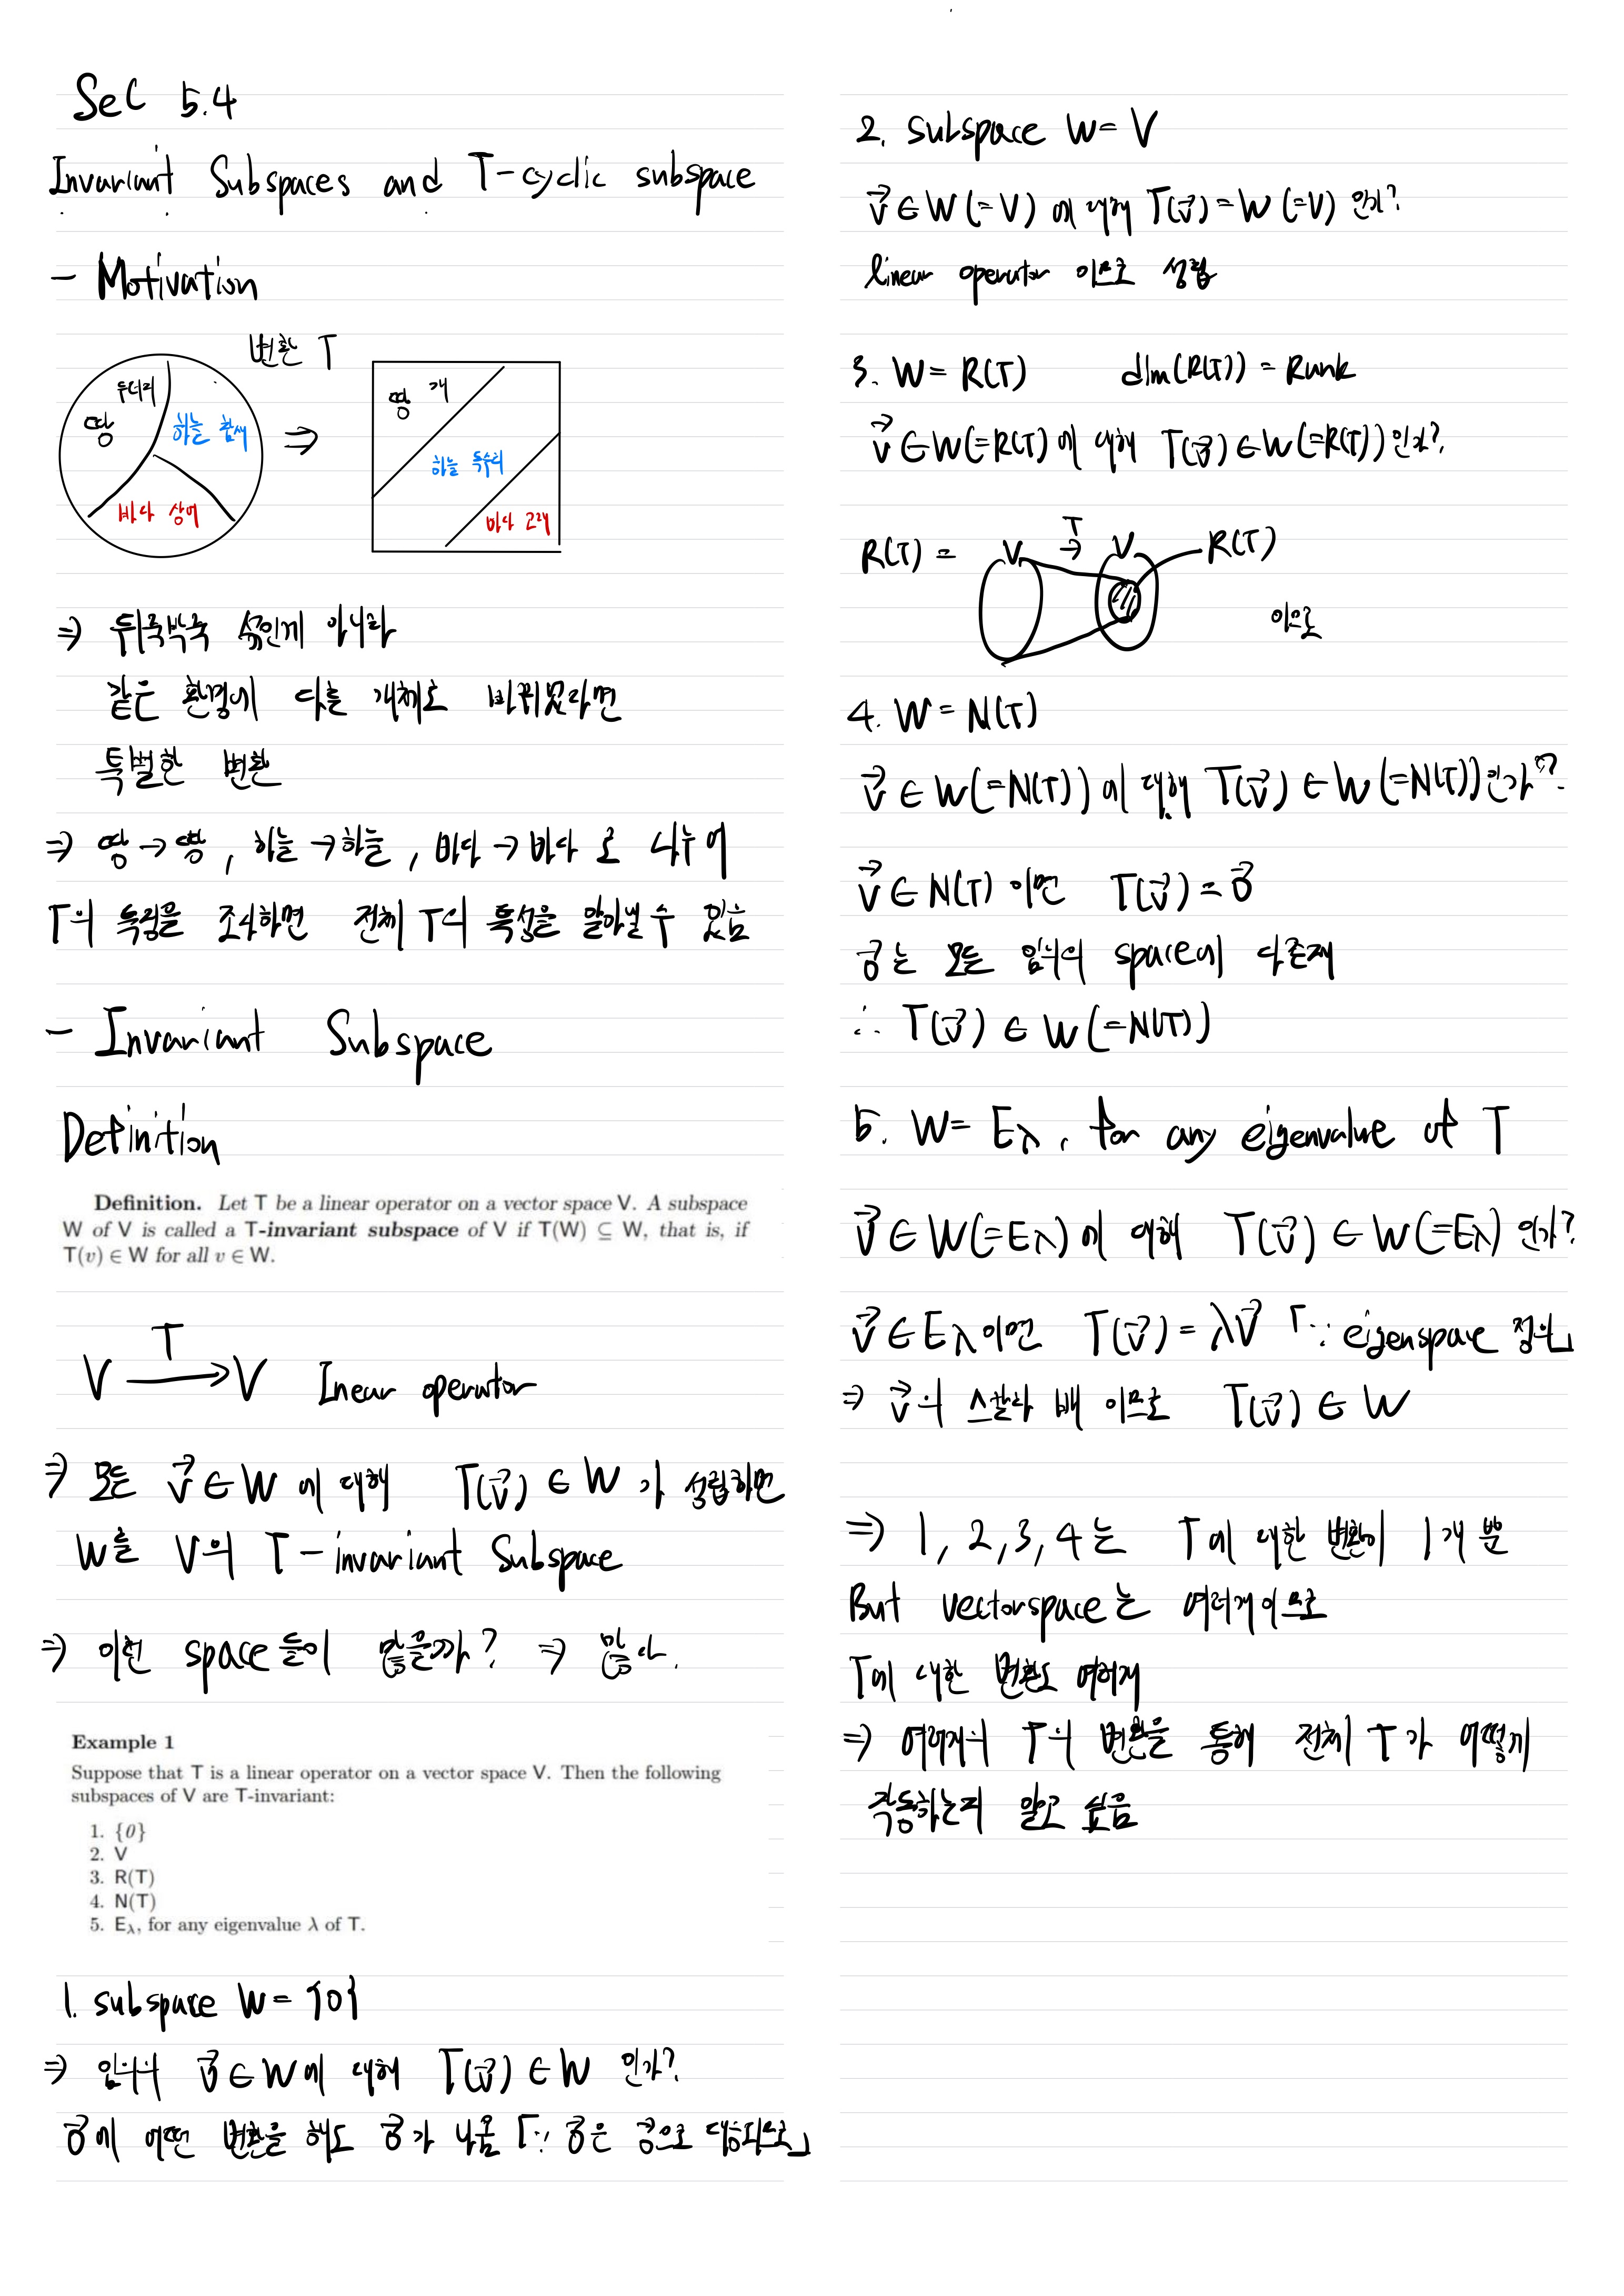 Sec 5.4
Invariant Subspaces and T-cyclic subspace
- Motivation
변환 T
두더지
땅
하늘 참새
바다 상어
⇒
땅 개
하늘 독수리
바다 고래
⇒ 뒤죽박죽 섞인게 아니라
같은 환경에 다른 개체로 바뀌었다면
특별한 변환
⇒ 땅→땅, 하늘→하늘, 바다→바다 로 나누어
T의 특징을 조사하면 전체 T의 특성을 알아낼 수 있음
- Invariant Subspace
Definition
Definition. Let T be a linear operator on a vector space V. A subspace
W of V is called a T-invariant subspace of V if T(W) ⊆ W, that is, if
T(v) ∈ W for all v ∈ W.
V →(T) V linear operator
⇒ 모든 v⃗ ∈ W 에 대해 T(v⃗) ∈ W 가 성립하면
W를 V의 T-invariant Subspace
⇒ 이런 space들이 많을까? ⇒ 많다.
Example 1
Suppose that T is a linear operator on a vector space V. Then the following
subspaces of V are T-invariant:
1. {0}
2. V
3. R(T)
4. N(T)
5. Eλ, for any eigenvalue λ of T.
1. subspace W = {0}
⇒ 임의의 v⃗ ∈ W에 대해 T(v⃗) ∈ W 인가?
0⃗에 어떤 변환을 해도 0⃗가 나옴 「∵ 0⃗은 0⃗으로 대응되므로」
2. subspace W = V
v⃗ ∈ W (=V) 에 대해 T(v⃗) = W (=V) 인가?
linear operator 이므로 성립
3. W = R(T) dim(R(T)) = Rank
v⃗ ∈ W(=R(T)) 에 대해 T(v⃗) ∈ W(=R(T)) 인가?
R(T) = V T→ V R(T)
이므로
4. W = N(T)
v⃗ ∈ W(=N(T)) 에 대해 T(v⃗) ∈ W (=N(T)) 인가?
v⃗ ∈ N(T) 이면 T(v⃗) = 0⃗
0⃗는 모든 임의의 space에 다존재
∴ T(v⃗) ∈ W (=N(T))
5. W = Eλ, for any eigenvalue of T
v⃗ ∈ W(=Eλ) 에 대해 T(v⃗) ∈ W(=Eλ) 인가?
v⃗ ∈ Eλ이면 T(v⃗) = λv⃗ 「∵ eigenspace 정의」
⇒ v⃗의 스칼라 배 이므로 T(v⃗) ∈ W
⇒ 1, 2, 3, 4는 T에 대한 변환이 1개 뿐
But vectorspace는 여러개이므로
T에 대한 변환도 여러개
⇒ 여러개의 T의 변환을 통해 전체 T가 어떻게
작동하는지 알고 싶음